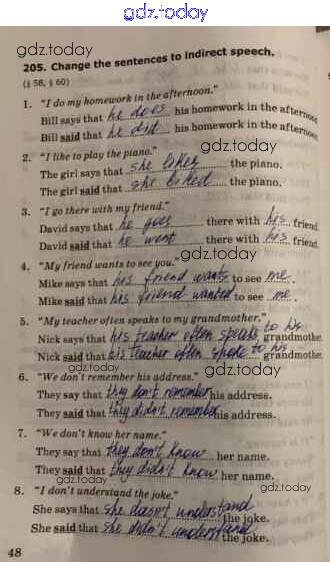 gdz.today
gdz.today
205. Change the sentences to indirect speech.
(§ 58, § 60)
1. "I do my homework in the afternoon."
Bill says that he does his homework in the afternoon
Bill said that he did his homework in the afternoon
2. "I like to play the piano."
The girl says that she likes the piano.
The girl said that she liked the piano.
3. "I go there with my friend."
David says that he goes there with his friend
David said that he went there with his friend
gdz.today gdz.today
4. "My friend wants to see you."
Mike says that his friend wants to see me.
Mike said that his friend wanted to see me.
5. "My teacher often speaks to my grandmother."
Nick says that his teacher often speaks to his grandmothe
Nick said that his teacher often spoke to his grandmothe
gdz.today
6. "We don't remember his address."
They say that they don't remember his address.
They said that they didn't remember his address.
7. "We don't know her name."
They say that they don't know her name.
They said that they didn't know her name.
gdz.today gdz.today
8. "I don't understand the joke."
She says that she doesn't understand the joke.
She said that she didn't understand the joke.
48
gdz.today